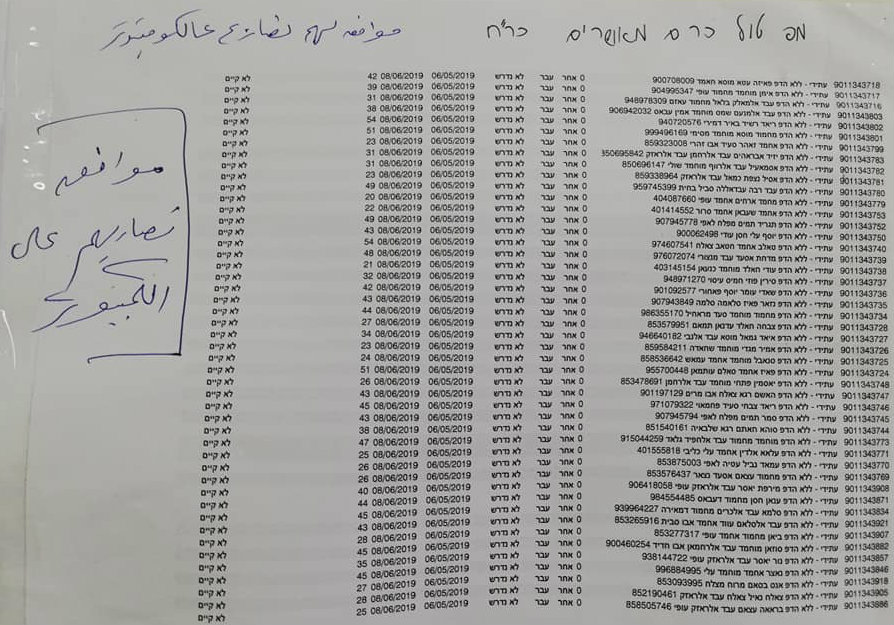 מפ טול כרם מאושרים כר"ח موافقه لهم تصاريح عالكومبيوتر
9011343718 עתידי - ללא הדפ פאיזה עטא מוסא חאמד 900708009 0 אחר עבר לא נדרש 06/05/2019 08/06/2019 42 לא קיים
9011343717 עתידי - ללא הדפ אימן מוחמד מחמוד עופי 904995347 0 אחר עבר לא נדרש 06/05/2019 08/06/2019 39 לא קיים
9011343716 עתידי - ללא הדפ עבד אלמאלק בלאל מחמוד עאזם 948978309 0 אחר עבר לא נדרש 06/05/2019 08/06/2019 31 לא קיים
9011343803 עתידי - ללא הדפ עבד אלמנעם שמט מוחמד אמין עבאס 906942032 0 אחר עבר לא נדרש 06/05/2019 08/06/2019 38 לא קיים
9011343802 עתידי - ללא הדפ ריאד רשיד באיר דמירי 940720576 0 אחר עבר לא נדרש 06/05/2019 08/06/2019 54 לא קיים
9011343801 עתידי - ללא הדפ מחמוד מוסא מוחמד מטימי 999496169 0 אחר עבר לא נדרש 06/05/2019 08/06/2019 51 לא קיים
9011343799 עתידי - ללא הדפ אחמד זאהר סעיד אבו זהרי 859323008 0 אחר עבר לא נדרש 06/05/2019 08/06/2019 23 לא קיים
9011343783 עתידי - ללא הדפ יזיד אבראהים עבד אלרחמן עבד אלראזק 850695842 0 אחר עבר לא נדרש 06/05/2019 08/06/2019 31 לא קיים
9011343782 עתידי - ללא הדפ אסמאעיל עבד אלרווף מוחמד שולי 850696147 0 אחר עבר לא נדרש 06/05/2019 08/06/2019 31 לא קיים
9011343781 עתידי - ללא הדפ אסיל נצפת כמאל עבד אלראזק 859338964 0 אחר עבר לא נדרש 06/05/2019 08/06/2019 23 לא קיים
9011343780 עתידי - ללא הדפ עבד רבה עבדאללה סביל בחית 959745399 0 אחר עבר לא נדרש 06/05/2019 08/06/2019 49 לא קיים
9011343779 עתידי - ללא הדפ מחמד ארחים אחמד עופי 404087660 0 אחר עבר לא נדרש 06/05/2019 08/06/2019 20 לא קיים
9011343752 עתידי - ללא הדפ אחמד שעבאן אחמד סרור 401414552 0 אחר עבר לא נדרש 06/05/2019 08/06/2019 22 לא קיים
9011343751 עתידי - ללא הדפ תגריד תמים מפלח לאפי 907945778 0 אחר עבר לא נדרש 06/05/2019 08/06/2019 49 לא קיים
9011343750 עתידי - ללא הדפ יוסף עלי חסן עודי 900062498 0 אחר עבר לא נדרש 06/05/2019 08/06/2019 43 לא קיים
9011343740 עתידי - ללא הדפ טאלב אחמד חטאב צאלח 974607541 0 אחר עבר לא נדרש 06/05/2019 08/06/2019 54 לא קיים
9011343739 עתידי - ללא הדפ מדחת אסעד עבד מנצורי 976072074 0 אחר עבר לא נדרש 06/05/2019 08/06/2019 48 לא קיים
9011343738 עתידי - ללא הדפ עודי חאלד מוחמד כנעאן 403145154 0 אחר עבר לא נדרש 06/05/2019 08/06/2019 21 לא קיים
9011343737 עתידי - ללא הדפ סירין פוזי חמיס עיסוי 948971270 0 אחר עבר לא נדרש 06/05/2019 08/06/2019 32 לא קיים
9011343736 עתידי - ללא הדפ שאדי עומר יוסף פאחורי 901092577 0 אחר עבר לא נדרש 06/05/2019 08/06/2019 42 לא קיים
9011343735 עתידי - ללא הדפ נזאר פאיז סלאמה סלמה 907943849 0 אחר עבר לא נדרש 06/05/2019 08/06/2019 43 לא קיים
9011343734 עתידי - ללא הדפ מחמוד מוחמד סעד מראחיל 986355170 0 אחר עבר לא נדרש 06/05/2019 08/06/2019 44 לא קיים
9011343728 עתידי - ללא הדפ צבחה חאלד עדנאן תמאם 853579951 0 אחר עבר לא נדרש 06/05/2019 08/06/2019 27 לא קיים
9011343727 עתידי - ללא הדפ איאד גמאל מוסא עבד אלנבי 946640182 0 אחר עבר לא נדרש 06/05/2019 08/06/2019 34 לא קיים
9011343726 עתידי - ללא הדפ אמיר מגדי מוחמד שחאדה 859584211 0 אחר עבר לא נדרש 06/05/2019 08/06/2019 23 לא קיים
9011343725 עתידי - ללא הדפ סנאבל מוחמד אחמד עמאש 858536642 0 אחר עבר לא נדרש 06/05/2019 08/06/2019 24 לא קיים
9011343724 עתידי - ללא הדפ פאיז אחמד סאלם עותמאן 955700448 0 אחר עבר לא נדרש 06/05/2019 08/06/2019 51 לא קיים
9011343748 עתידי - ללא הדפ יאסמין פתחי מוחמד עבד אלרחמן 853478691 0 אחר עבר לא נדרש 06/05/2019 08/06/2019 26 לא קיים
9011343747 עתידי - ללא הדפ האשם רגא צאלח אבו מרים 901197129 0 אחר עבר לא נדרש 06/05/2019 08/06/2019 43 לא קיים
9011343746 עתידי - ללא הדפ ריאד צבחי סעיד פחמאוי 971079322 0 אחר עבר לא נדרש 06/05/2019 08/06/2019 45 לא קיים
9011343745 עתידי - ללא הדפ סמר תמים מפלח לאפי 907945794 0 אחר עבר לא נדרש 06/05/2019 08/06/2019 43 לא קיים
9011343744 עתידי - ללא הדפ סוהא חאתם רגא שלבאיה 851540161 0 אחר עבר לא נדרש 06/05/2019 08/06/2019 38 לא קיים
9011343773 עתידי - ללא הדפ מוחמד מחמוד עבד אלחפיד גלאד 915044259 0 אחר עבר לא נדרש 06/05/2019 08/06/2019 47 לא קיים
9011343771 עתידי - ללא הדפ עלאא אלדין אחמד עלי כליבי 401555818 0 אחר עבר לא נדרש 06/05/2019 08/06/2019 25 לא קיים
9011343770 עתידי - ללא הדפ עמאד נביל עטיה לאפי 853875003 0 אחר עבר לא נדרש 06/05/2019 08/06/2019 26 לא קיים
9011343769 עתידי - ללא הדפ מחמוד עצאם אסעד נצאר 853576437 0 אחר עבר לא נדרש 06/05/2019 08/06/2019 26 לא קיים
9011343908 עתידי - ללא הדפ מירפת יאסר עבד אלראזק עופי 906418058 0 אחר עבר לא נדרש 06/05/2019 08/06/2019 40 לא קיים
9011343871 עתידי - ללא הדפ ענאן חסן מחמוד דעבאס 984554485 0 אחר עבר לא נדרש 06/05/2019 08/06/2019 44 לא קיים
9011343834 עתידי - ללא הדפ סלמא עבד אלכרים מחמוד דמאירה 939964227 0 אחר עבר לא נדרש 06/05/2019 08/06/2019 45 לא קיים
9011343921 עתידי - ללא הדפ עבד אלסלאם עווד אחמד אבו סבית 853265916 0 אחר עבר לא נדרש 06/05/2019 08/06/2019 43 לא קיים
9011343907 עתידי - ללא הדפ ביאן מחמוד אחמד עופי 853277317 0 אחר עבר לא נדרש 06/05/2019 08/06/2019 28 לא קיים
9011343882 עתידי - ללא הדפ סוזאן מוחמד עבד אלרחמאן אבו חדיד 900460254 0 אחר עבר לא נדרש 06/05/2019 08/06/2019 45 לא קיים
9011343857 עתידי - ללא הדפ נור יאסר עבד אלראזק עופי 938144722 0 אחר עבר לא נדרש 06/05/2019 08/06/2019 35 לא קיים
9011343846 עתידי - ללא הדפ נאצר אחמד מוחמד עלי 996884995 0 אחר עבר לא נדרש 06/05/2019 08/06/2019 45 לא קיים
9011343918 עתידי - ללא הדפ אנס בסאם מרוח מצלח 853093995 0 אחר עבר לא נדרש 06/05/2019 08/06/2019 27 לא קיים
9011343905 עתידי - ללא הדפ צאלח נאיל צאלח עבד אלראזק 852190461 0 אחר עבר לא נדרש 06/05/2019 08/06/2019 28 לא קיים
9011343886 עתידי - ללא הדפ בראאה עצאם עבד אלראזק עופי 858505746 0 אחר עבר לא נדרש 06/05/2019 08/06/2019 25 לא קיים
موافقه
تصاريهم على
الكمبيوتر